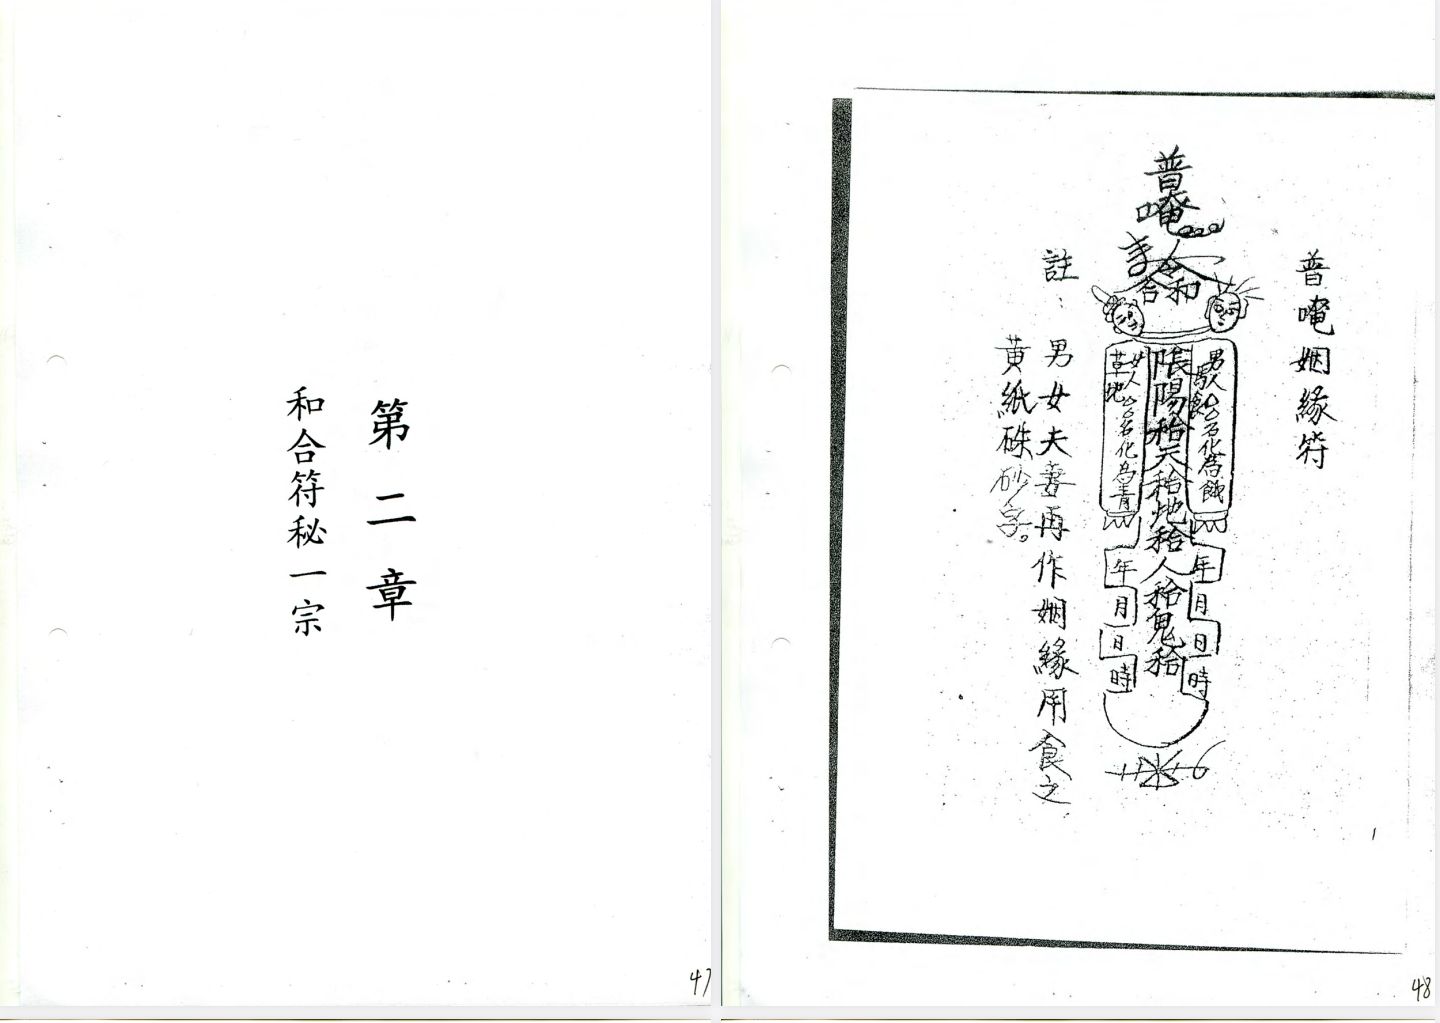 第二章
和合符秘一宗
47
普唵姻緣符
普唵
合和
男人○○名化為餓
女人○○名化為青
草地
陽和天和地和人和鬼和
年月日時
年月日時
註：
男女夫妻再作姻緣用食之
黃紙硃砂字。
1
48